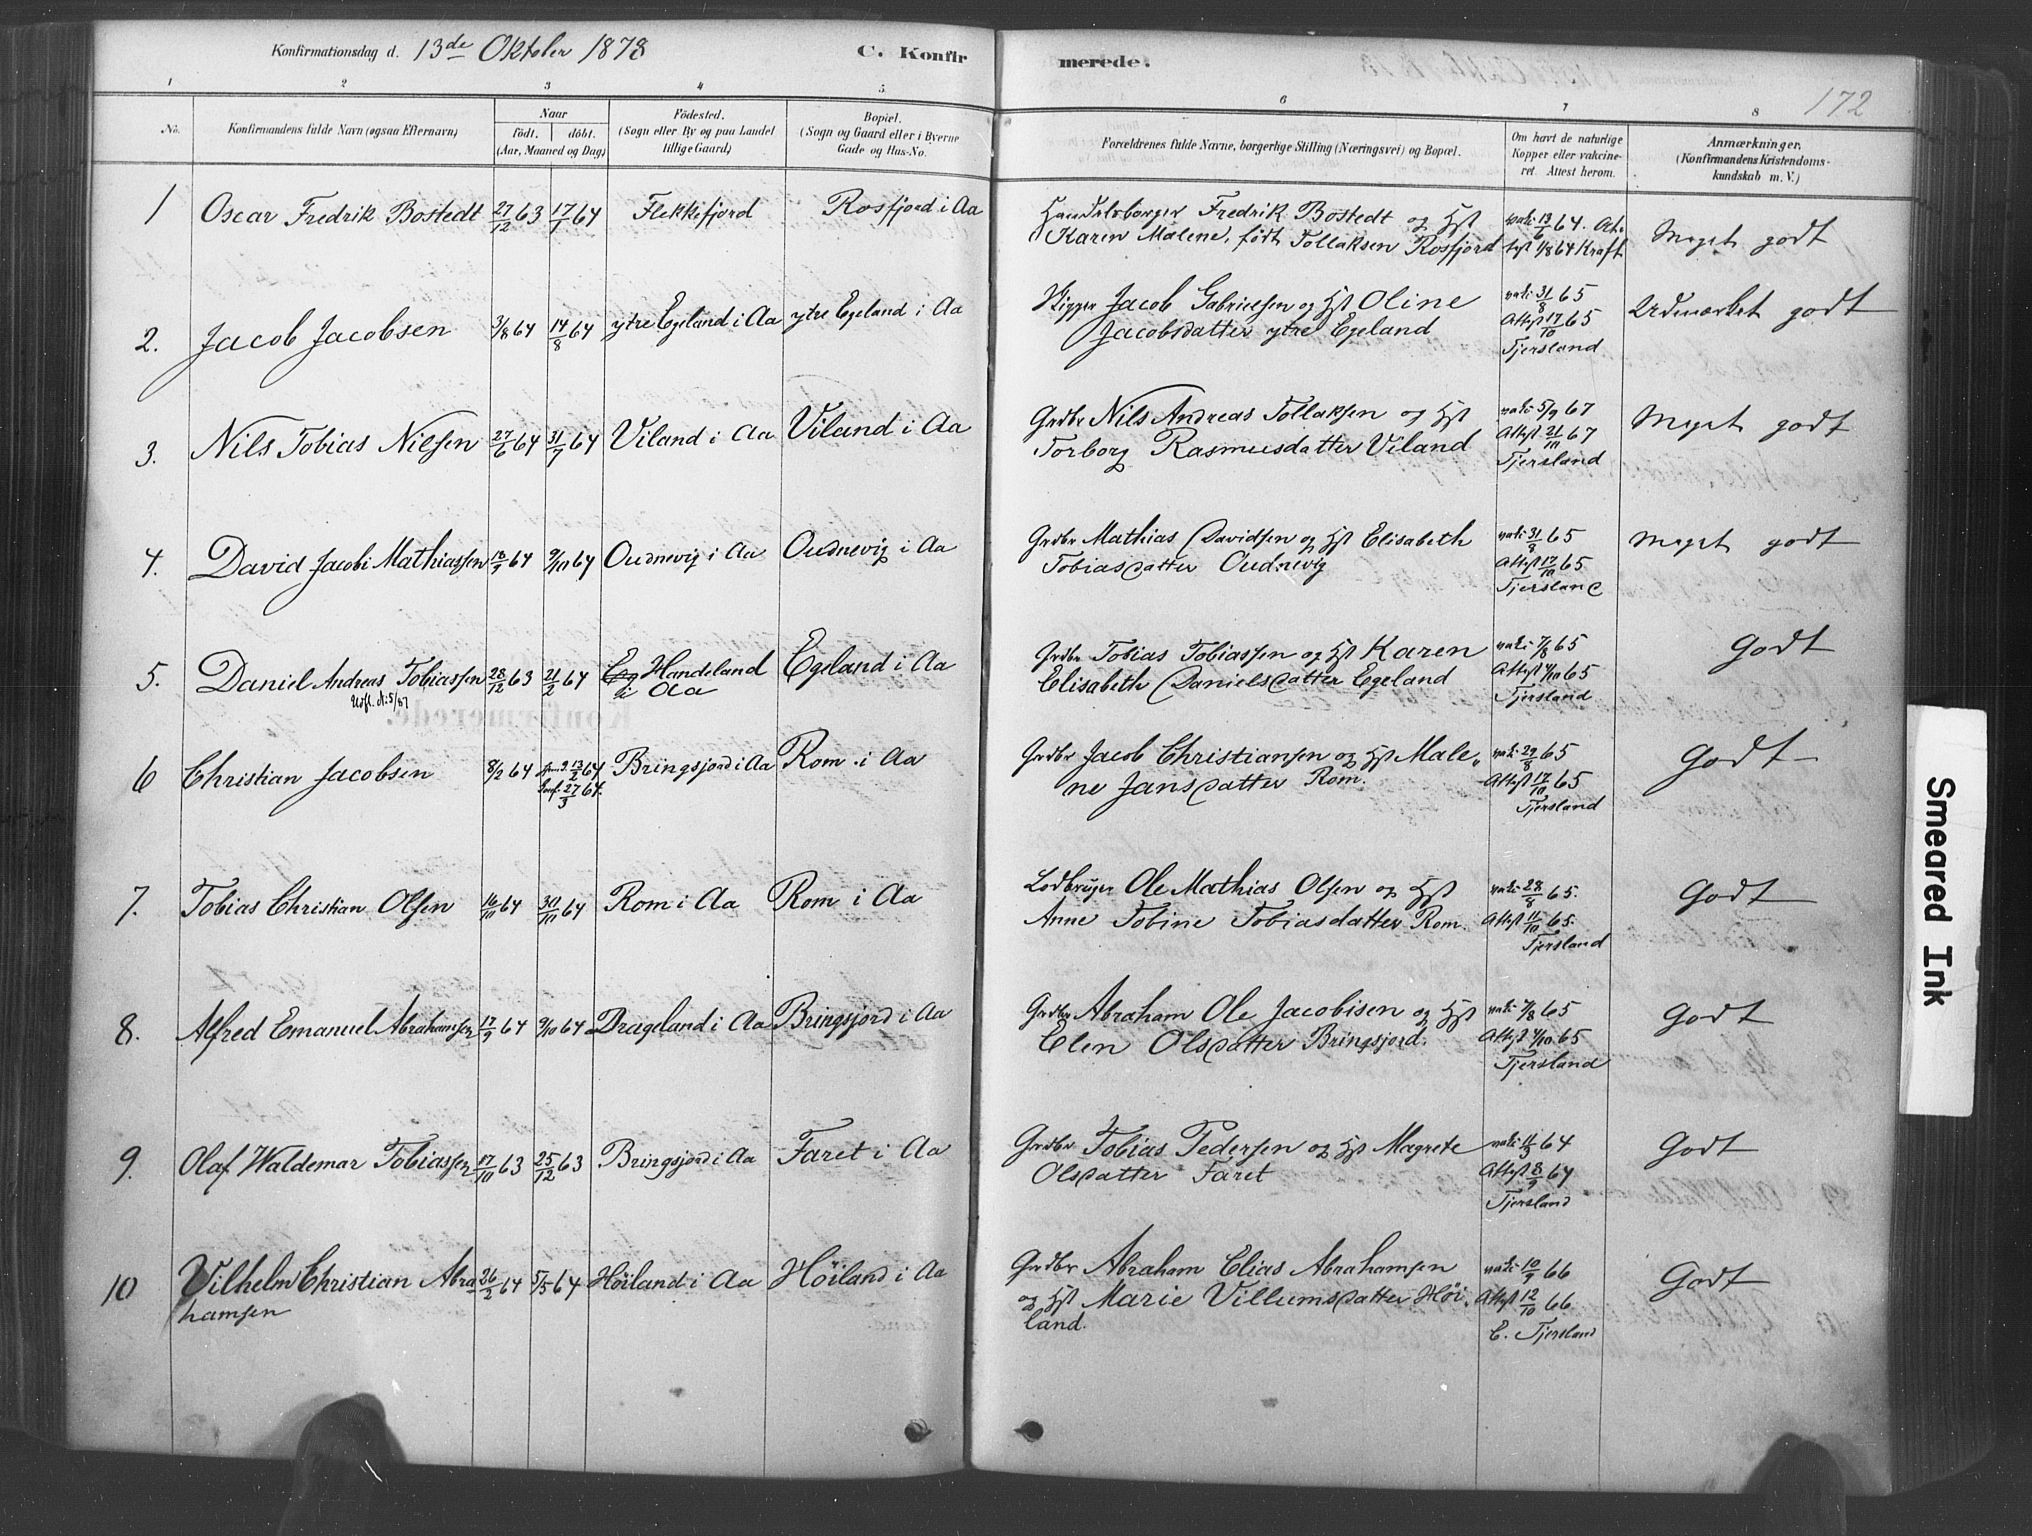 Konfirmationsdag d. 13de Oktober 1878
C. Konfirmerede.
172
1 2 3 4 5 6 7 8
No.
Konfirmandens fulde Navn (ogsaa Efternavn)
Naar
födt. döbt.
(Aar, Maaned og Dag)
Födested.
(Sogn eller By og paa Landet
tillige Gaard)
Bopæl.
(Sogn og Gaard eller i Byerne
Gade og Hus-No.
Forældrenes fulde Navne, borgerlige Stilling (Næringsvei) og Bopæl.
Om havt de naturlige
Kopper eller vakcine-
ret. Attest herom.
Anmærkninger.
(Konfirmandens Kristendoms-
kundskab m. V.)
1 Oscar Fredrik Bostedt 27/12 63 17/1 64 Flekkefjord Rosfjord i Aa
Handelsborger Fredrik Bostedt og Hst
Karen Malene, født Tollaksen Rosfjord
vak: 13/6 64. Att-
test 1/8 64 Kraft
Meget godt
2. Jacob Jacobsen 3/8 64 14/8 64 ytre Egeland i Aa ytre Egeland i Aa
Skipper Jacob Gabrielsen og Hst Oline
Jacobsdatter ytre Egeland
vak: 31/8 65
Attest 17/10 65
Tjersland
Udmærket godt
3. Nils Tobias Nilsen 27/6 64 31/7 64 Viland i Aa Viland i Aa
Grdbr Nils Andreas Tollaksen og Hst
Torborg Rasmusdatter Viland
vak: 5/9 67
Attest 21/10 67
Tjersland
Meget godt
4. David Jacobi Mathiassen 18/9 64 9/10 64 Oudnevig i Aa Oudnevig i Aa
Grdbr Mathias Davidsen og Hst Elisabeth
Tobiasdatter Oudnevig
vak: 31/8 65
Attest 17/10 65
Tjersland
Meget godt
5. Daniel Andreas Tobiassen 28/12 63 21/2 64 Eg Handeland Egeland i Aa
Udfl. At. 5/87
i Aa
Grdbr Tobias Tobiassen og Hst Karen
Elisabeth Danielsdatter Egeland
vak: 7/8 65
Attest 4/10 65
Tjersland
Godt
6 Christian Jacobsen 8/2 64 13/2 64 27/3 64. Bringsjord i Aa Rom i Aa
Grdbr Jacob Christiansen og Hst Male-
ne Jansdatter Rom.
vak: 29/8 65
Attest 17/10 65
Tjersland
Godt
7. Tobias Christian Olsen 16/10 64 30/10 64 Rom i Aa Rom i Aa
Lodbruger Ole Mathias Olsen og Hst
Anne Tobine Tobiasdatter Rom.
vak: 28/8 65.
Attest 11/10 65.
Tjersland
Godt
8. Alfred Emanuel Abrahamsen 17/9 64 9/10 64 Drageland i Aa Bringsjord i Aa
Grdbr Abraham Ole Jacobisen og Hst
Elen Olsdatter Bringsjord.
vak: 7/8 65
Attest 4/10 65
Tjersland
Godt
9. Olaf Waldemar Tobiassen 17/10 63 25/12 63 Bringsjord i Aa Faret i Aa
Grdbr Tobias Pedersen og Hst Magrete
Olsdatter Faret
64
Attest 8/9 64
Tjersland
Godt
10 Vilhelm Christian Abra 26/2 64 5/5 64 Höiland i Aa Höiland i Aa
hamsen
Grdbr Abraham Elias Abrahamsen
og Hst Marie Villumsdatter Höi-
land.
vak: 10/9 66
Attest 12/10 66
C. Tjersland
Godt
Smeared Ink